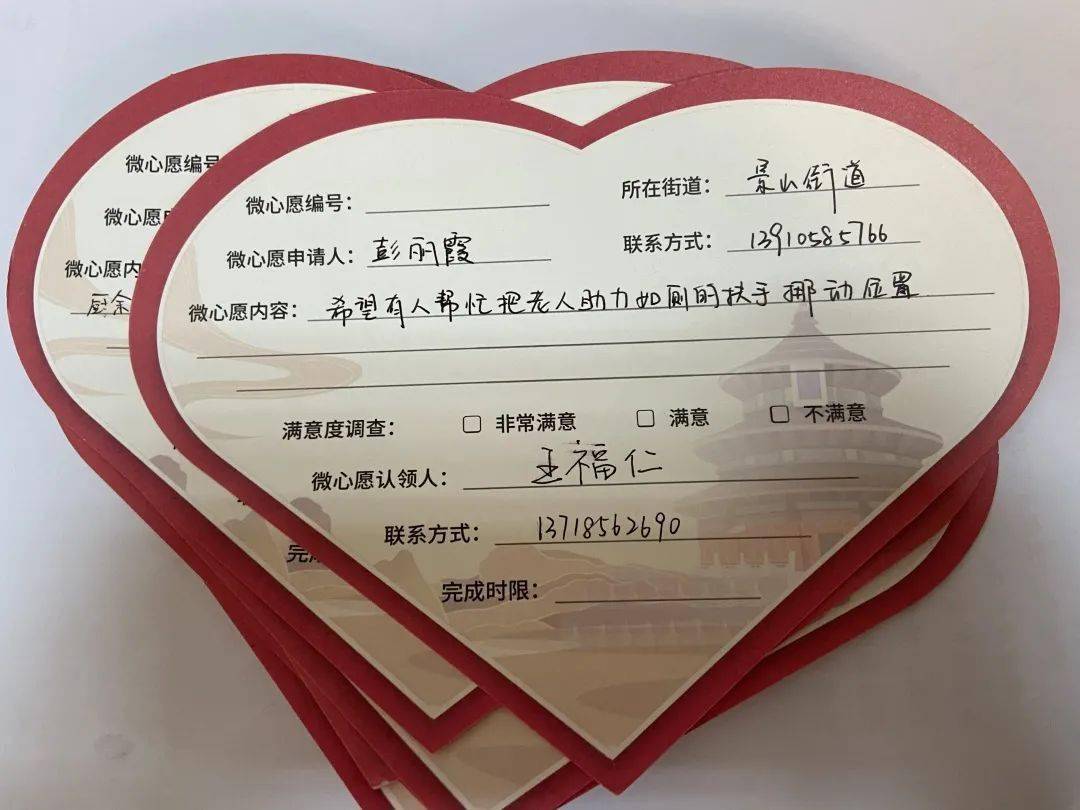 微心愿编号：
所在街道：景山街道
微心愿申请人：彭丽霞
联系方式：13910585766
微心愿内容：希望有人帮忙把老人助力如厕的扶手挪动位置
满意度调查： □ 非常满意 □ 满意 □ 不满意
微心愿认领人：王福仁
联系方式：13718562690
完成时限：
微心愿编号
微心愿
微心愿内
厨余
完